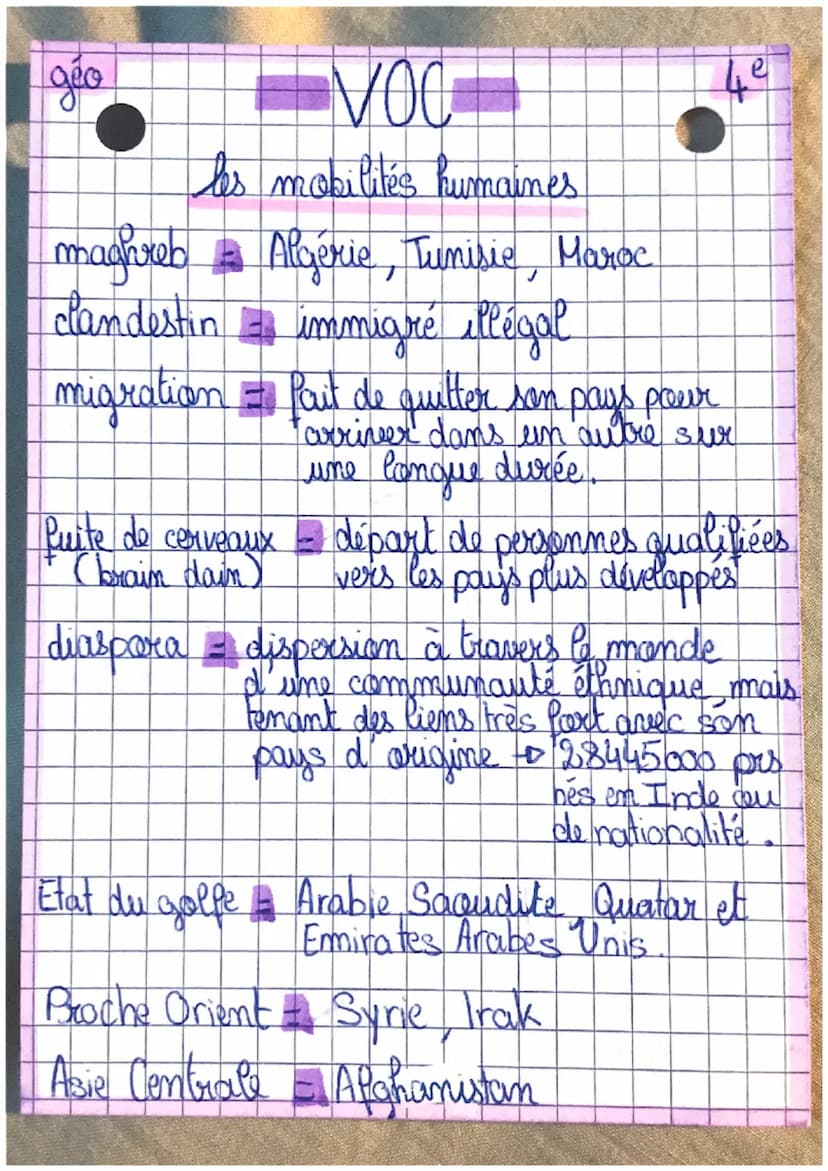 géo VOC 4e
les mobilités humaines
maghreb = Algérie, Tunisie, Maroc
clandestin = immigré illégal
migration = fait de quitter son pays pour
arriver dans un autre sur
une longue durée.
fuite de cerveaux = départ de personnes qualifiées
(brain dain) vers les pays plus développés
diaspora = dispersion à travers le monde
d'une communauté éthnique, mais
tenant des liens très fort avec son
pays d'origine → 28445000 prs
nés en Inde ou
de nationalité.
Etat du golfe = Arabie Saoudite, Quatar et
Emirates Arabes Unis.
Proche Orient = Syrie, Irak
Asie Centrale = Afghanistan